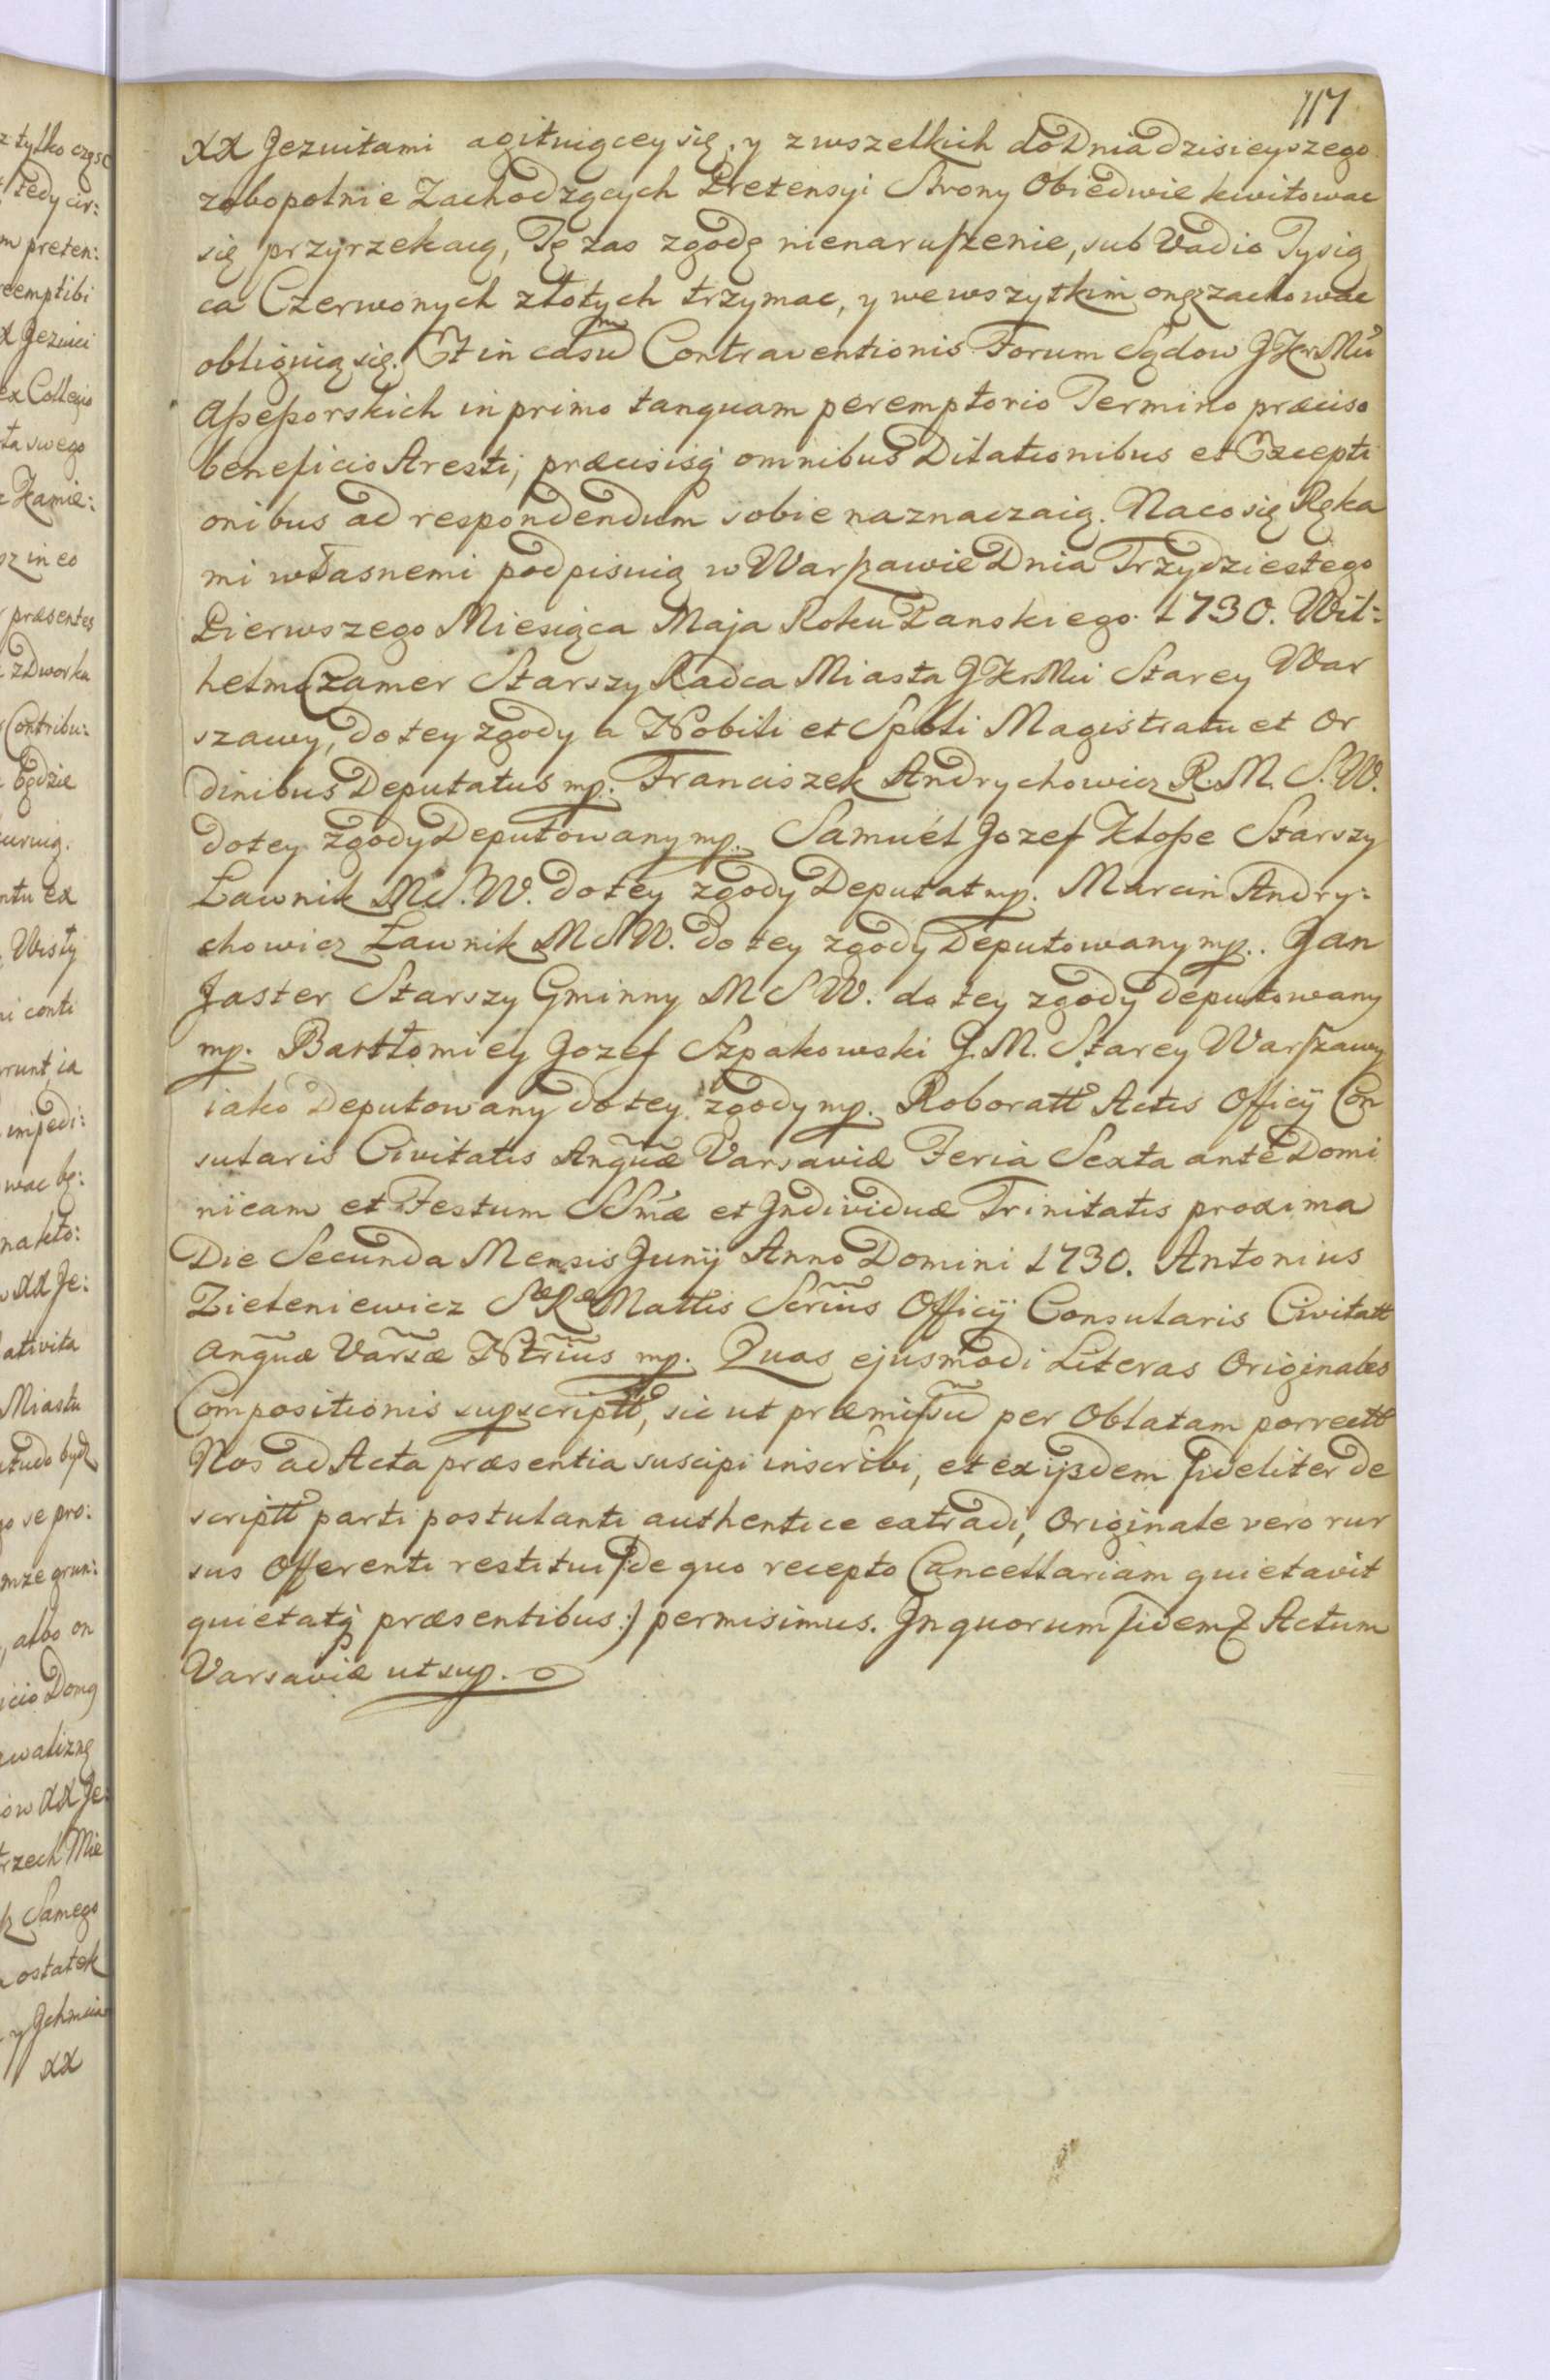 117
XX Jezuitami agituiącey się, y z wszelkich do Dnia dzisieyszego
zobopolnie Zachodzących Pretensyi Strony Obiedwie kwitowac
się przyrzekaią, Tę zas zgodę nienaruszenie, sub Vadio Tysią
ca Czerwonych złotych trzymac, y we wszytkim onęz zachowac
obliguią się. Et in casu Contraventionis Forum Sądow JKrMci
Assessorskich in primo tanquam peremptorio Termino præciso
beneficio Aresti, præcisisq omnibus Dilationibus et Excepti
onibus ad respondendum sobie naznaczaią. Naco się Ręka
mi własnemi podpisuią w Warszawie Dnia Trzydziestego
Pierwszego Miesiąca Maja Roku Panskiego 1730. Wil:
helm Czamer Starszy Radca Miasta JKrMci Starey War
szawy, do tey zgody a Nobili et Spbli Magistratu et Or
dinibus Deputatus mp. Franciszek Andrychowicz R. M. S. W.
do tey zgody Deputowany mp. Samuel Jozef Klosse Starszy
Ławnik M S. W. do tey zgody Deputat mp. Marcin Andry:
chowicz Ławnik M S W. do tey zgody Deputowany mp. Jan
Jaster Starszy Gminny M S W. do tey zgody deputowany
mp. Bartłomiey Jozef Szpakowski G. M. Starey Warszawy
iako Deputowany do tey zgody mp. Roboratt Actis Officij Con
sularis Civitatis Anquæ Varsaviæ Feria Sexta ante Domi
nicam et Festum SSmæ et Individuæ Trinitatis proxima
Die Secunda Mensis Junij Anno Domini 1730. Antonius
Zieleniewicz Sæ Ræ Mattis Scrius Officij Consularis Civitatt
Anquæ Varsæ Ntrius mp. Quas ejusmodi Literas Originales
Compositionis supscriptt, sic ut præmissu per Oblatam porrectt
Nos ad Acta præsentia suscipi inscribi, et ex ijsdem fideliter de
scriptt parti postulanti authentice extradi, Originale vero rur
sus Offerenti restitui /:de quo recepto Cancellariam quietavit
quietatq præsentibus:/ permisimus. In quorum fidem Actum
Varsaviæ ut sup.